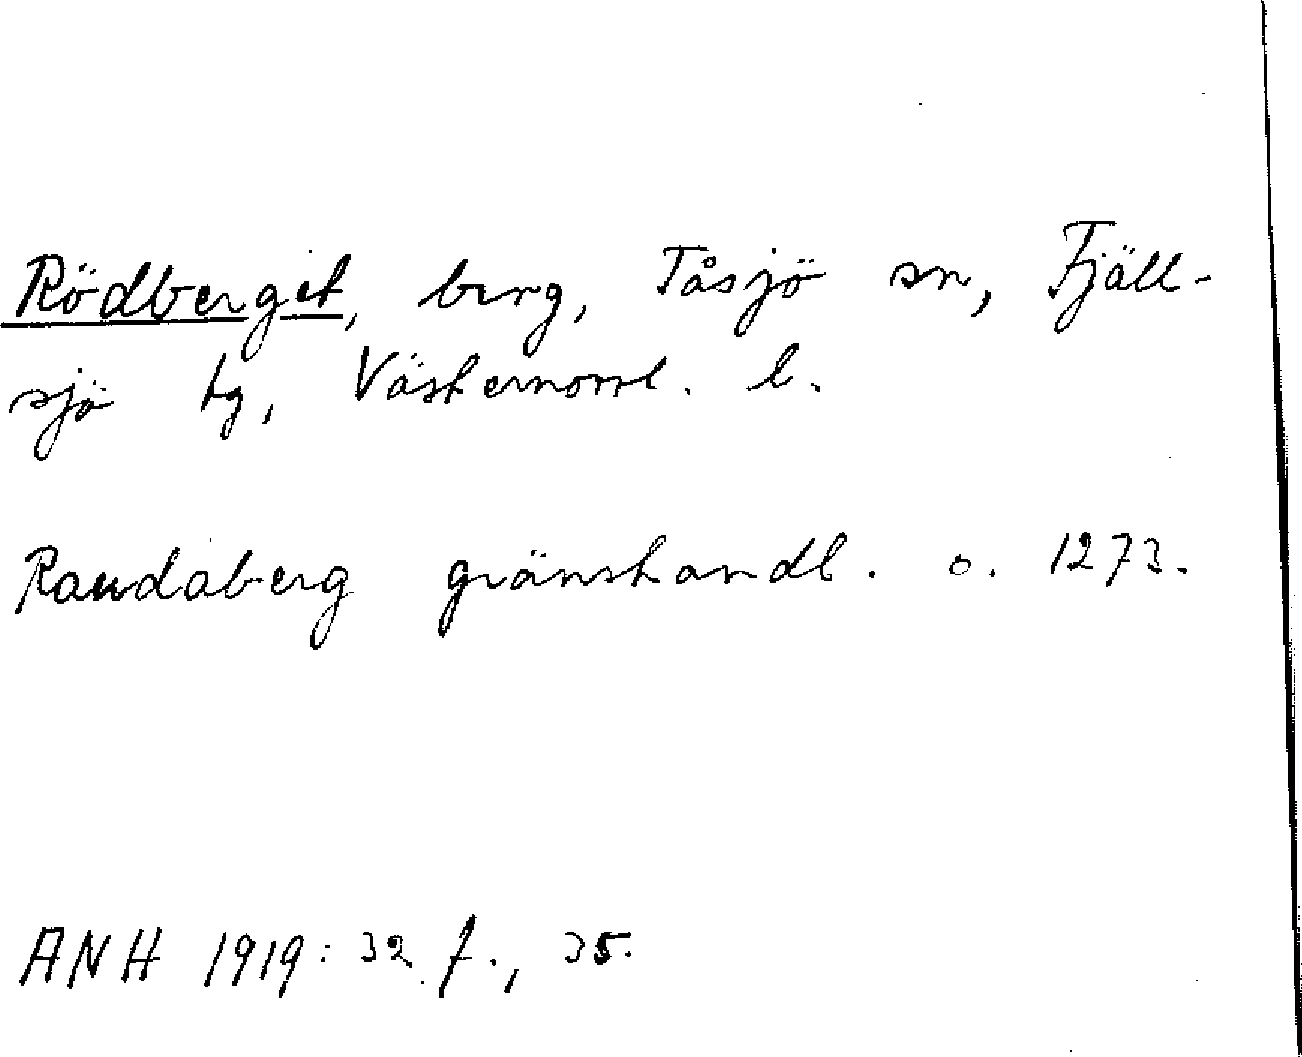 Rödberget, berg, Tåsjö sn, Fjäll-
sjö tg, Västernorrl. l.
Raudaberg gränshandl. o. 1273.
ANH 1919: 32 f., 35.